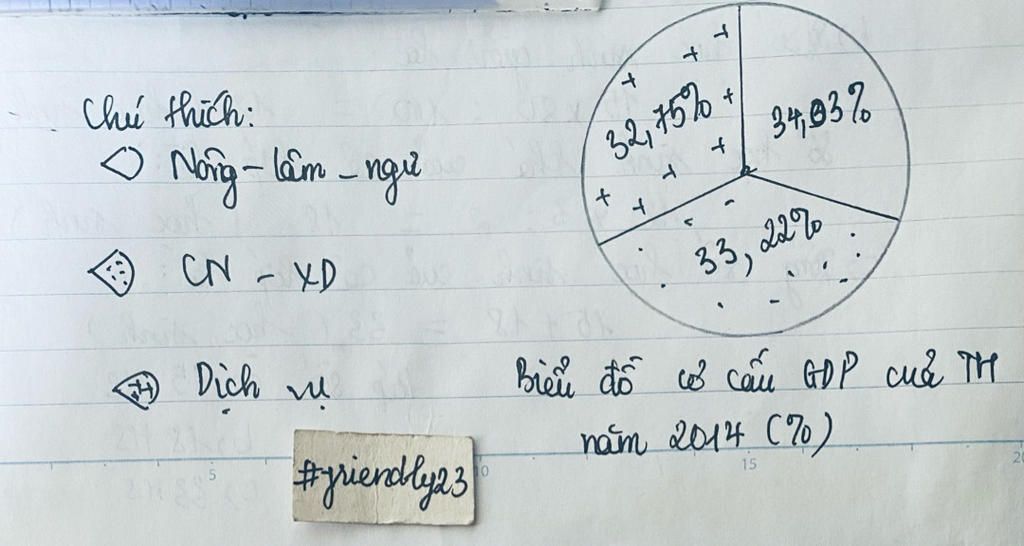 Chú thích:
Nông - lâm - ngư
CN - XD
Dịch vụ
32,75%
34,03%
33,22%
Biểu đồ cơ cấu GDP của TH
năm 2014 (%)
#friendly23
5
10
15
20